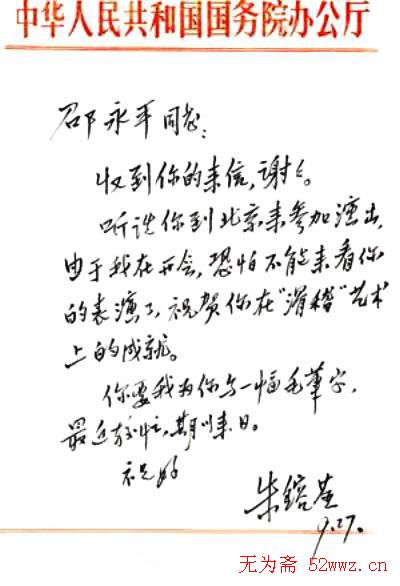 中华人民共和国国务院办公厅
邵永平同志：
收到你的来信，谢々。
听说你到北京来参加演出，
由于我在开会，恐怕不能来看你
的表演了，祝贺你在“滑稽”艺术
上的成就。
你要我为你写一幅毛筆字，
最近较忙，期以来日。
祝好
朱鎔基
9.27.
无为斋 52wwz.cn